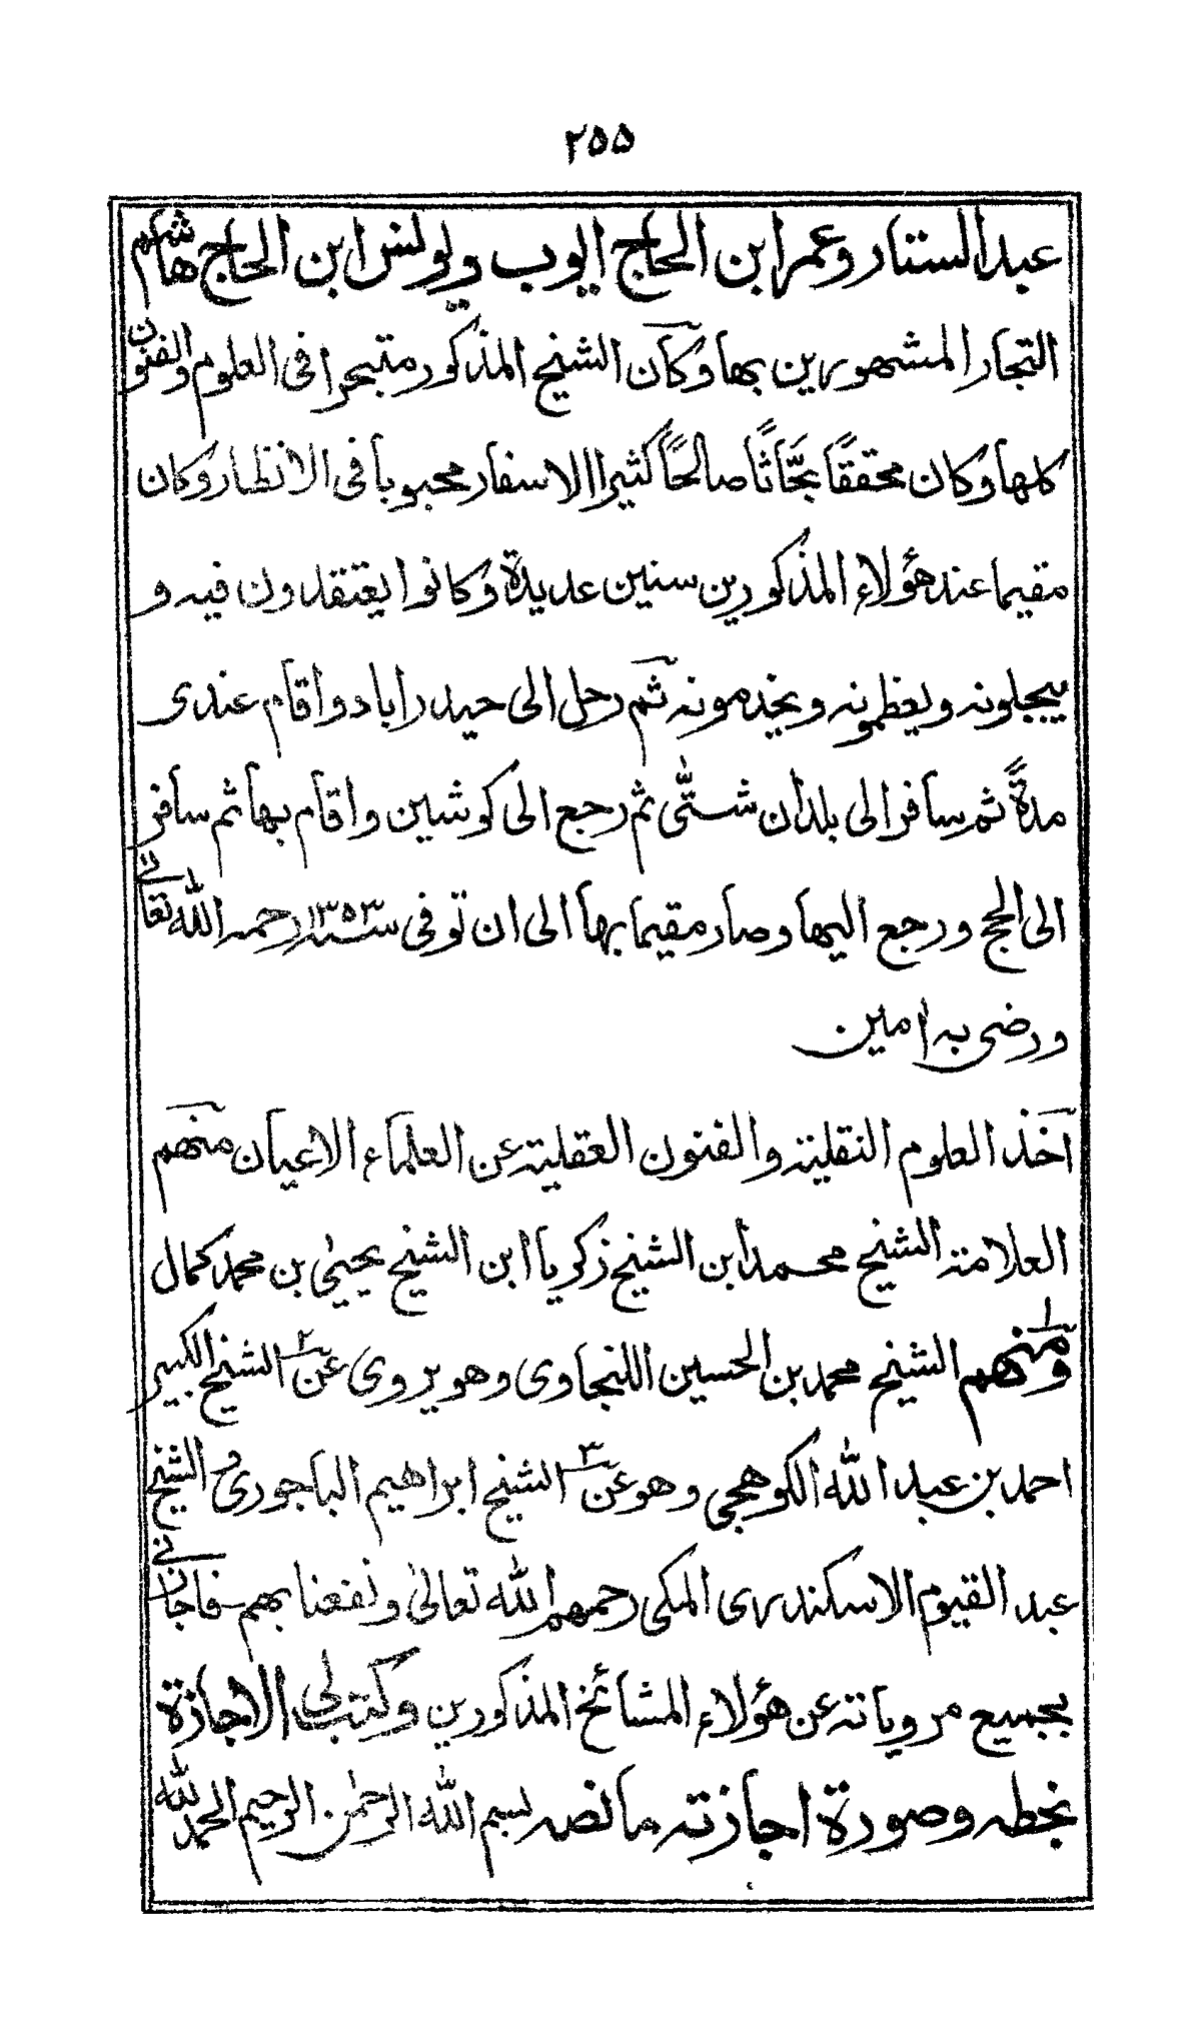 ٢٥٥
عبد الستار وعمر ابن الحاج ايوب ويونس ابن الحاج هاشم
التجار المشهورين بها وكآن الشيخ المذكور متبحرا فى العلوم والفنون
كلها وكان محققًا بحّاثًا صالحًا كثيرا الاسفار محبوبا فى الانظار وكان
مقيما عند هؤلاء المذكورين سنين عديدة وكانوا يعتقدون فيه و
يبجلونه ويعظمونه ويخدمونه ثم رحل الى حيدراباد واقام عندى
مدةً ثم سافر الى بلدان شتّٰى ثم رجع الى كوشين واقام بها ثم سافر
الى الحج ورجع اليها وصار مقيما بها الى ان توفى سنة ١٣٥٣ رحمه الله تعالى
ورضى به اٰمين
آخذ العلوم النقلية والفنون العقلية عن العلماء الاعيان منهم
العلامة الشيخ محمد ابن الشيخ زكريا ابن الشيخ يحيٰى بن محمد كمال
١ ومنهم الشيخ محمد بن الحسين اللنجاوى وهو يروى عن ٢ الشيخ الكبير
احمد بن عبد الله الكوهجى وهو عن ٣ الشيخ ابراهيم الباجورى و الشيخ
عبد القيوم الاسكندرى المكى رحمهم الله تعالىٰ ونفعنا بهم فاجازنى
بجميع مروياته عن هؤلاء المشائخ المذكورين وكتب لى الاجازة
بخطه وصورة اجازته ما نصه بسم الله الرحمٰن الرحيم الحمد لله